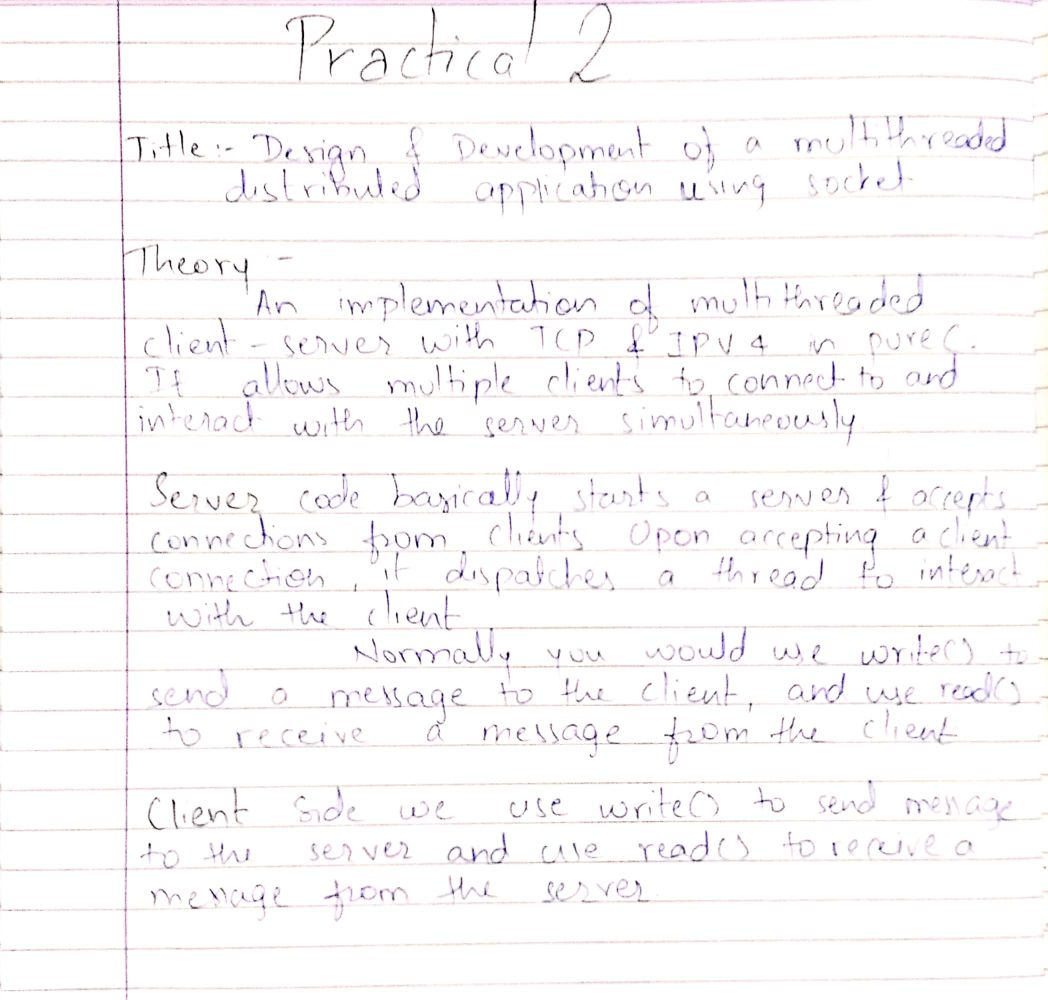 Practical 2
Title :- Design & Development of a multithreaded
distributed application using socket
Theory -
An implementation of multithreaded
client - server with TCP & IPV4 in pure C.
It allows multiple clients to connect to and
interact with the server simultaneously
Server code basically starts a server & accepts
connections from clients Upon accepting a client
connection, it dispatches a thread to interact
with the client
Normally you would use write() to
send a message to the client, and use read()
to receive a message from the client
Client Side we use write() to send message
to the server and use read() to receive a
message from the server